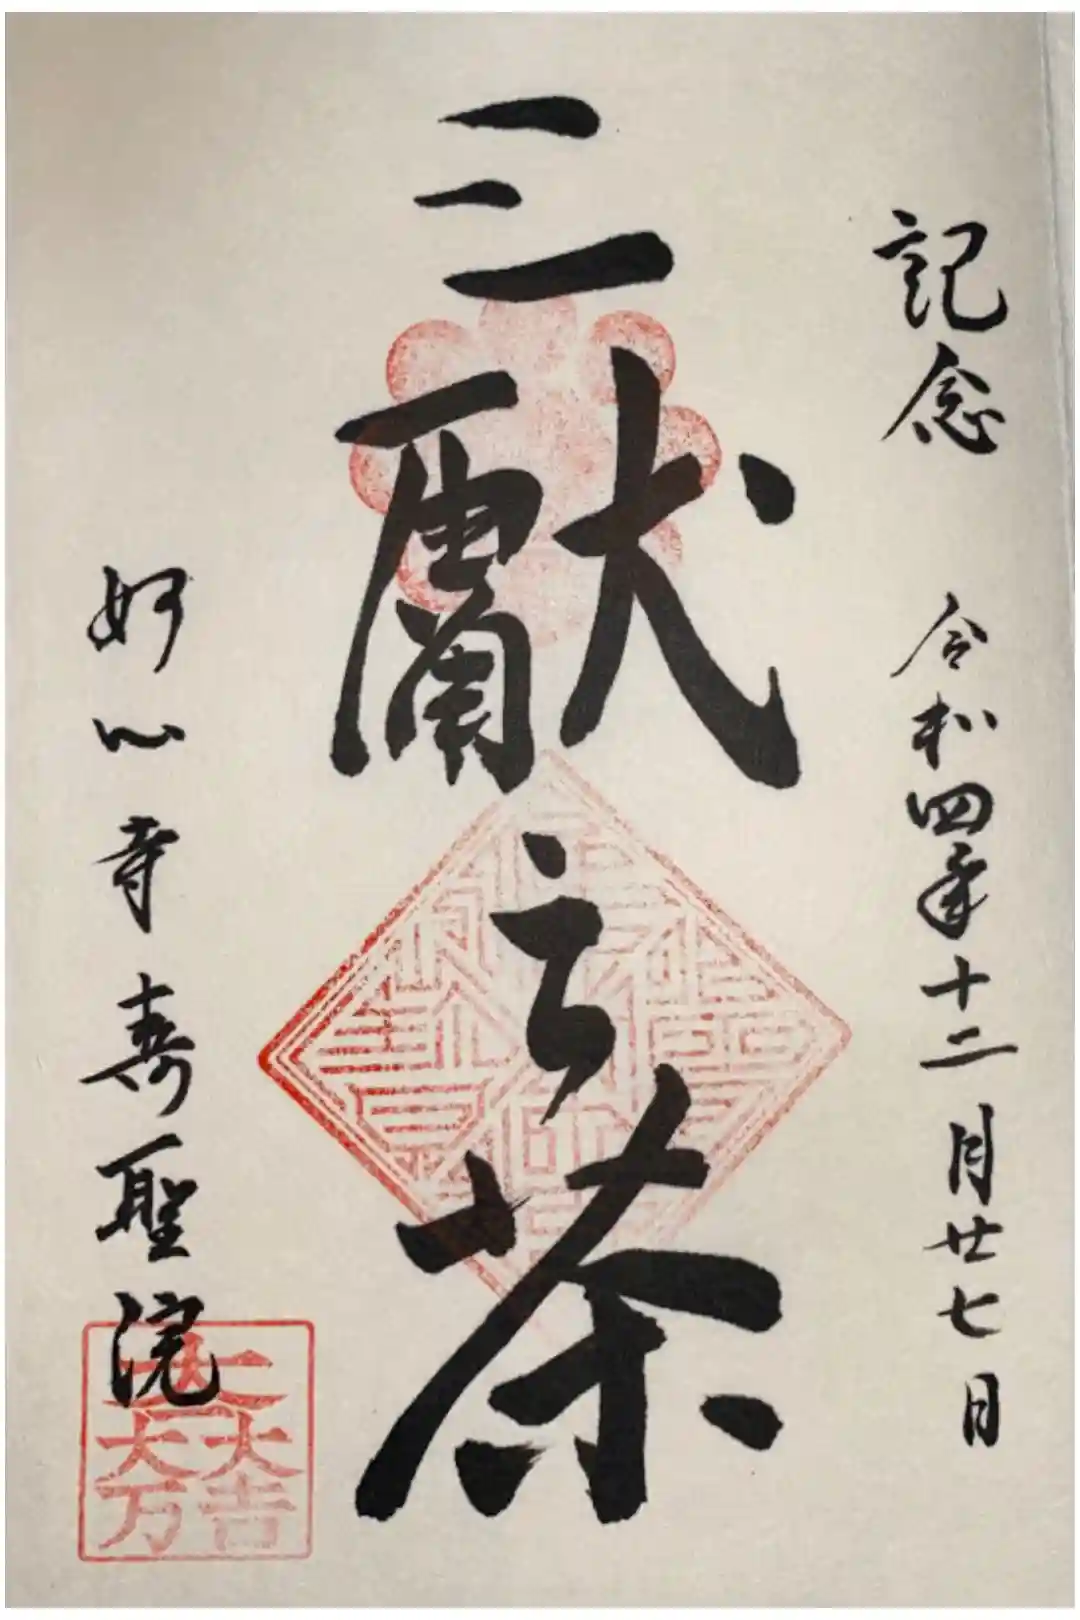 記念 令和四年十二月廿七日
三献之茶
妙心寺 壽聖院
大一大万大吉